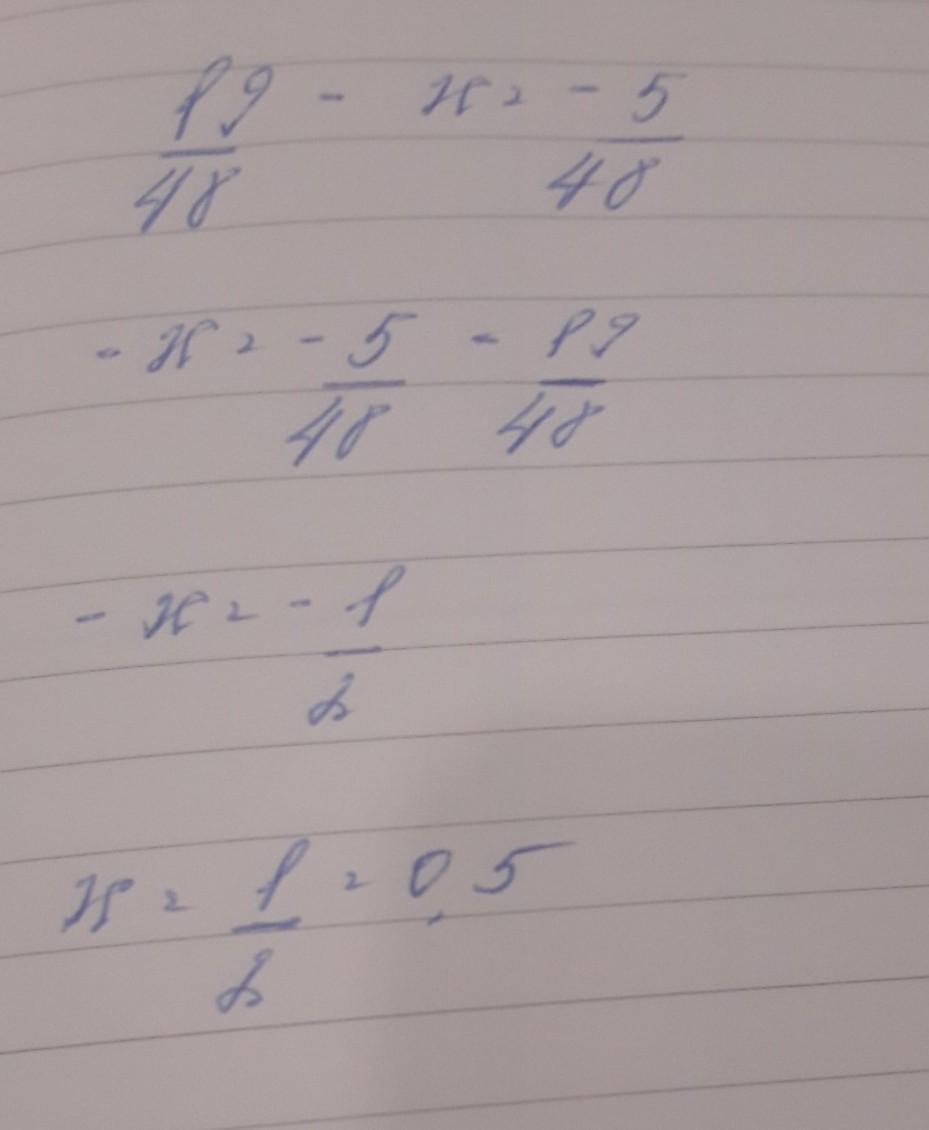 19/48 - x = - 5/48
- x = - 5/48 - 19/48
- x = - 1/2
x = 1/2 = 0,5